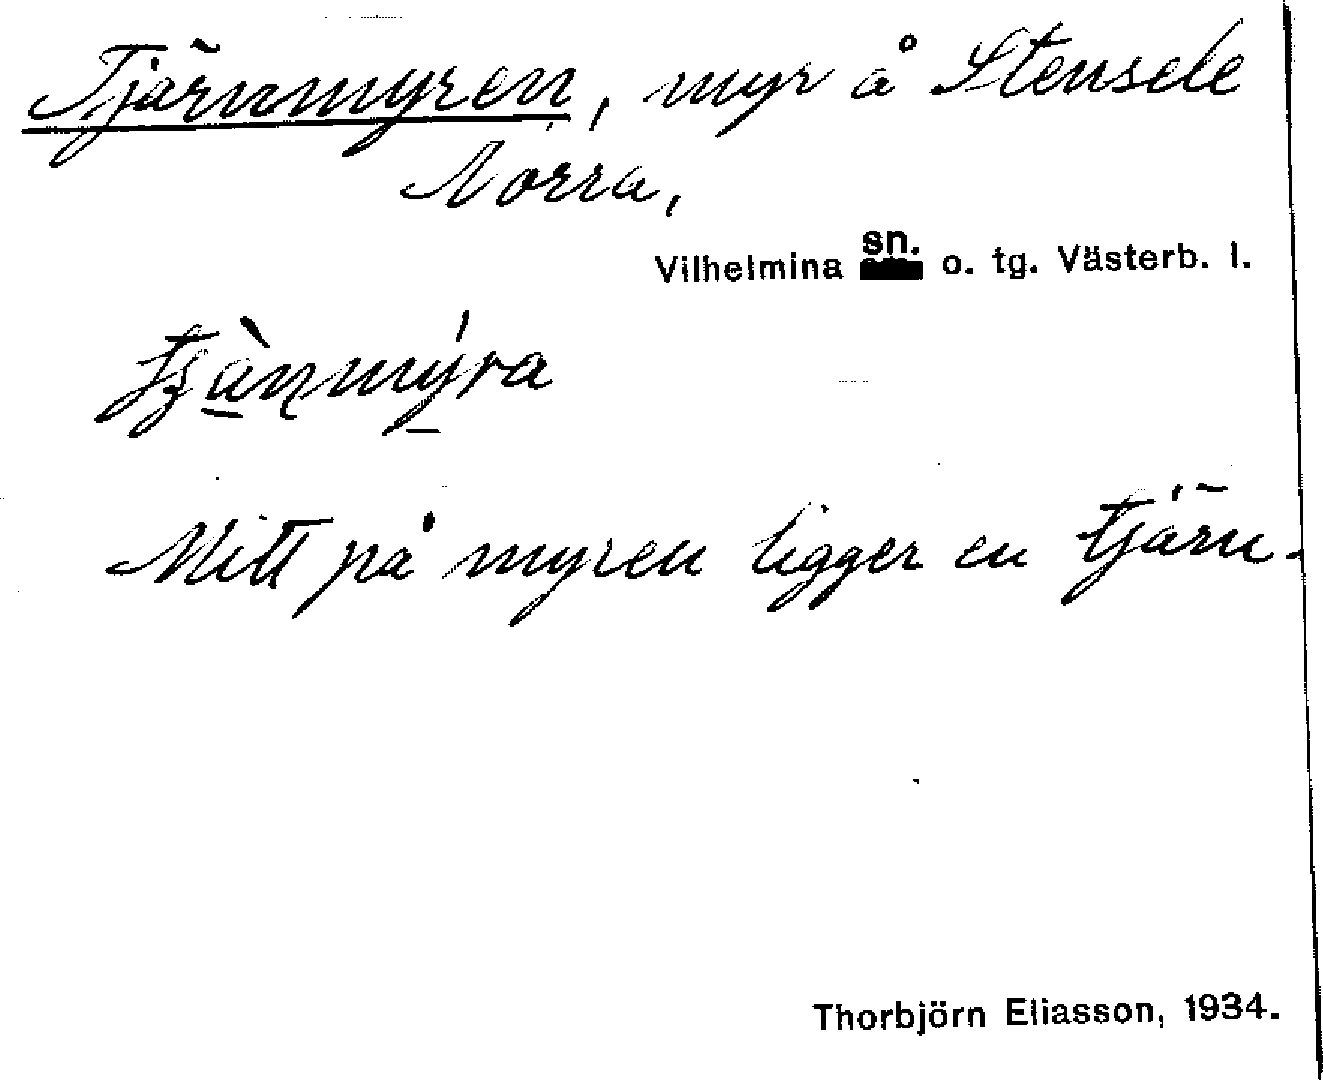 Tjärnmyren, myr å Stensele
Norra,
Vilhelmina sn. o. tg. Västerb. l.
Mitt på myren ligger en tjärn.
Thorbjörn Eliasson, 1934.